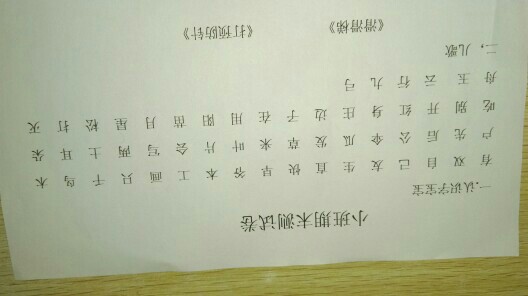 小班期末测试卷
一.认识字宝宝
有 双 自 己 友 生 直 快 早 爷 本 工 画 只 子 鸟 木
户 先 后 公 伞 瓜 发 草 米 叶 片 会 写 两 土 耳 朵
吃 别 开 红 身 庄 边 子 在 用 阳 苗 月 星 松 打 灭
舟 玉 云 行 九 弓
二，儿歌
《滑滑梯》 《打预防针》